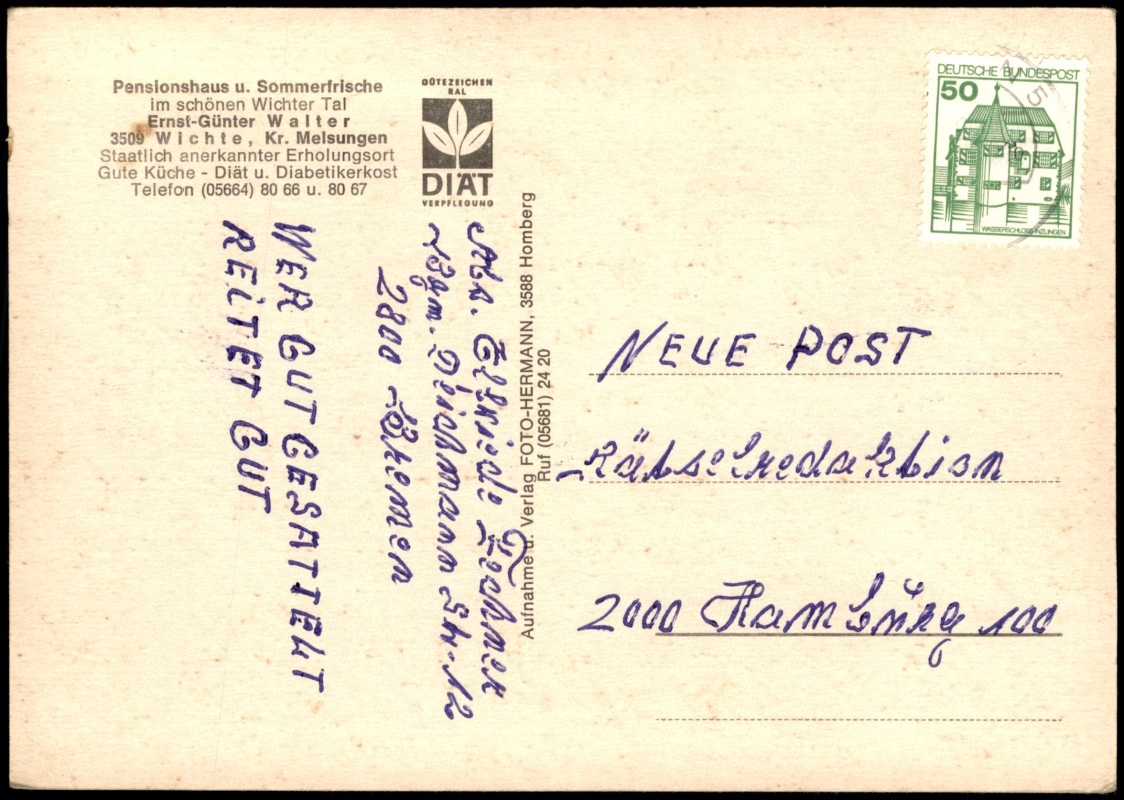 Pensionshaus u. Sommerfrische
im schönen Wichter Tal
Ernst-Günter Walter
3509 Wichte, Kr. Melsungen
Staatlich anerkannter Erholungsort
Gute Küche - Diät u. Diabetikerkost
Telefon (05664) 80 66 u. 80 67
GÜTEZEICHEN
RAL
DIÄT
VERPFLEGUNG
DEUTSCHE BUNDESPOST
50
WASSERSCHLOSS INZLINGEN
WER GUT GESATTELT
REITET GUT
Abs. Elfriede Lechner
Bgm. Deichmann Str. 12
2800 Bremen
Aufnahme u. Verlag FOTO-HERMANN, 3588 Homberg
Ruf (05681) 24 20
NEUE POST
Rätselredaktion
2000 Hamburg 100